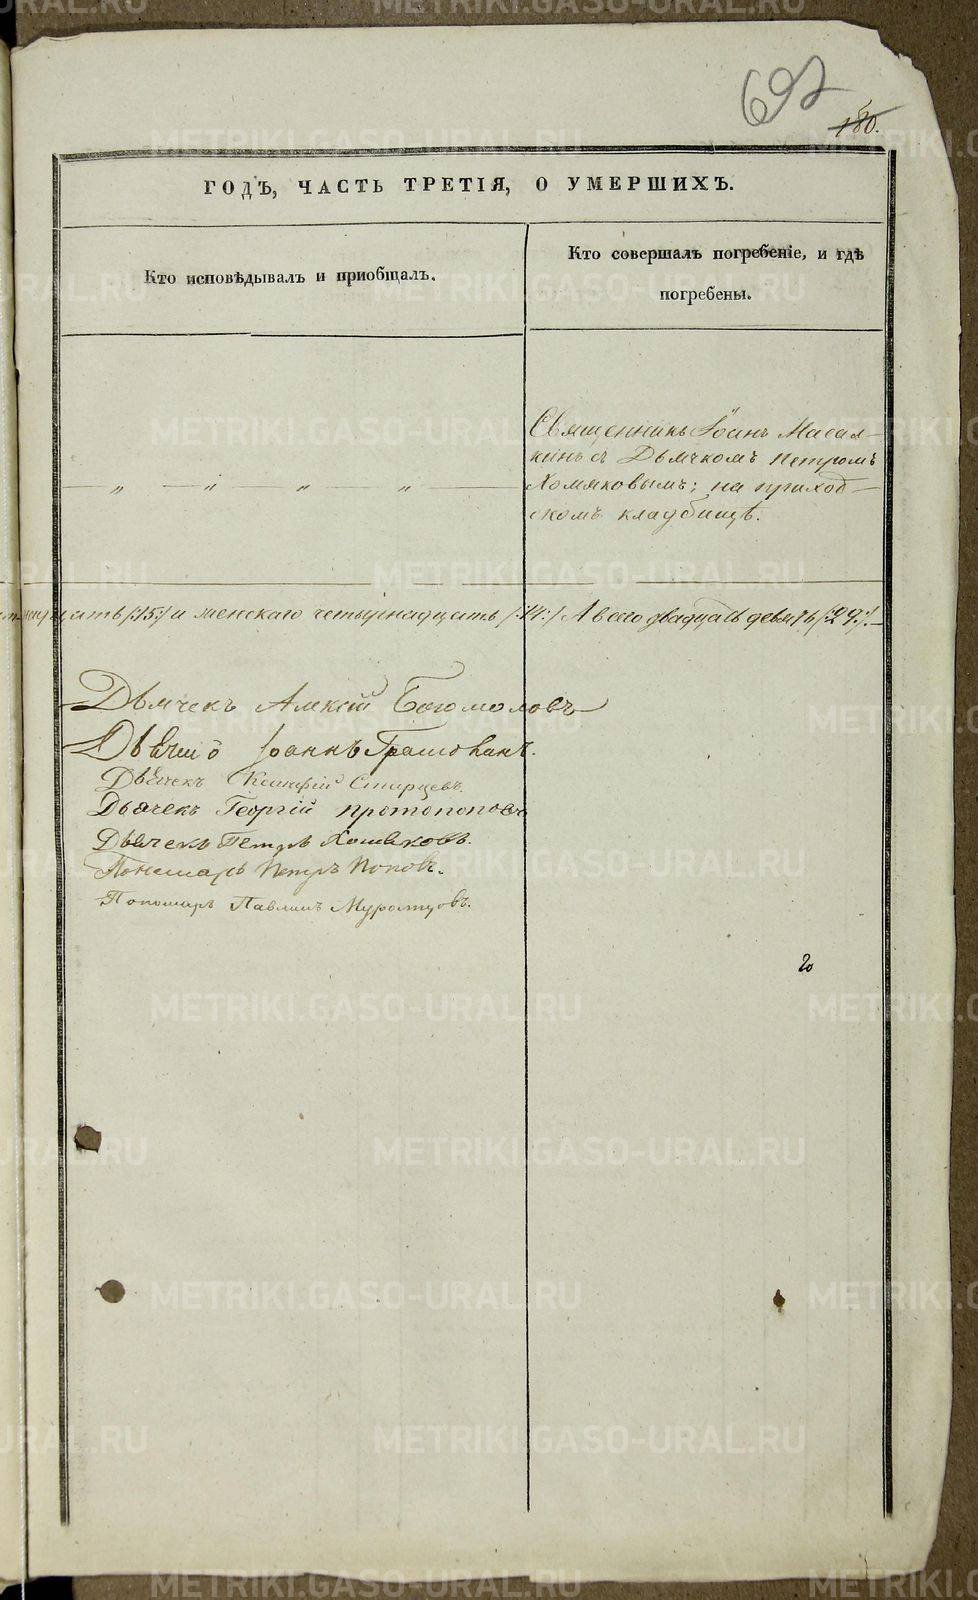 692
180.
ГОДЪ, ЧАСТЬ ТРЕТІЯ, О УМЕРШИХЪ.
Кто исповѣдывалъ и пріобщалъ.
Кто совершалъ погребеніе, и гдѣ
погребены.
Священникъ Іоанъ Масал-
кинъ съ Дьячкомъ Петромъ
— „ — „ — „ — „ — Хомяковымъ; на приход-
скомъ кладбищѣ.
надцать /:15:/ и женскаго четырнадцать /:14:/ А всего двадцать девять /:29:/.
Дьячекъ Алексій Богомоловъ
Іоаннъ
Дьячекъ Старцевъ.
Дьячекъ Георгій Протопоповъ
Дьячекъ Петръ Хомяковъ.
Пономарь Петръ Поповъ.
Пономарь Павлинъ
METRIKI.GASO-URAL.RU